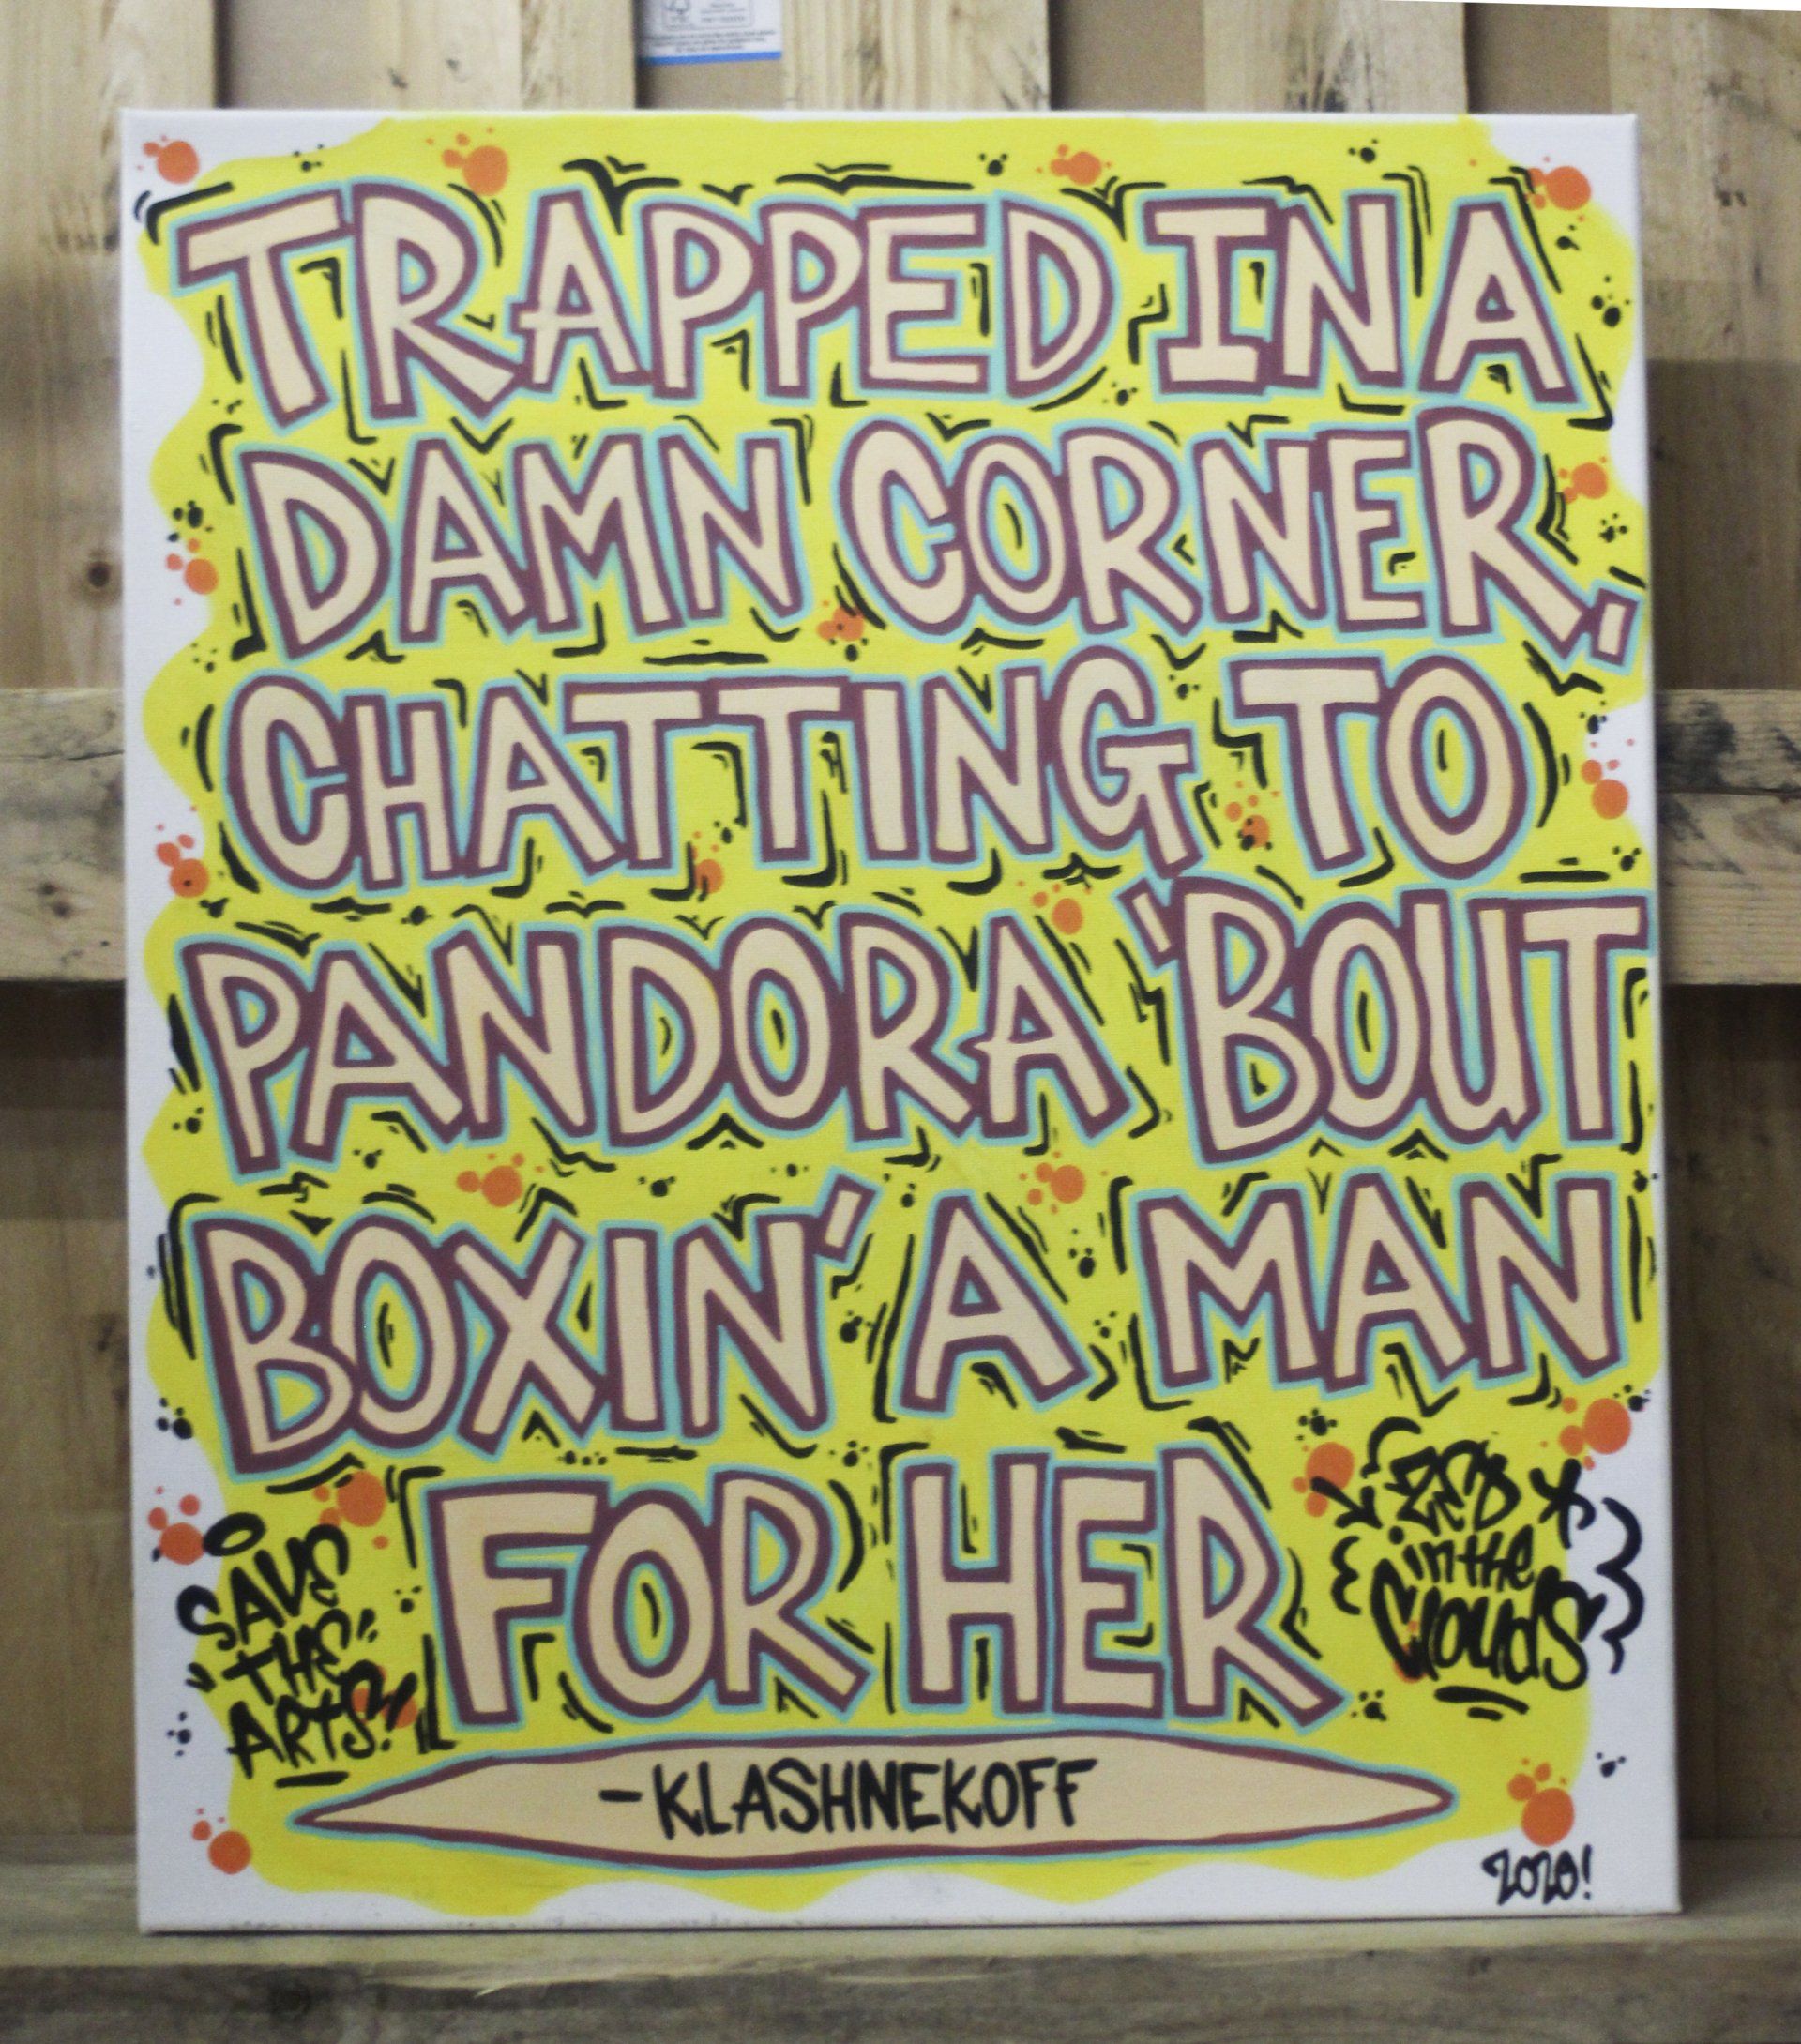 TRAPPED IN A
DAMN CORNER,
CHATTING TO
PANDORA 'BOUT
BOXIN' A MAN
FOR HER
SAVE
"THE"
ARTS!
in the
Clouds
-KLASHNEKOFF
2020!